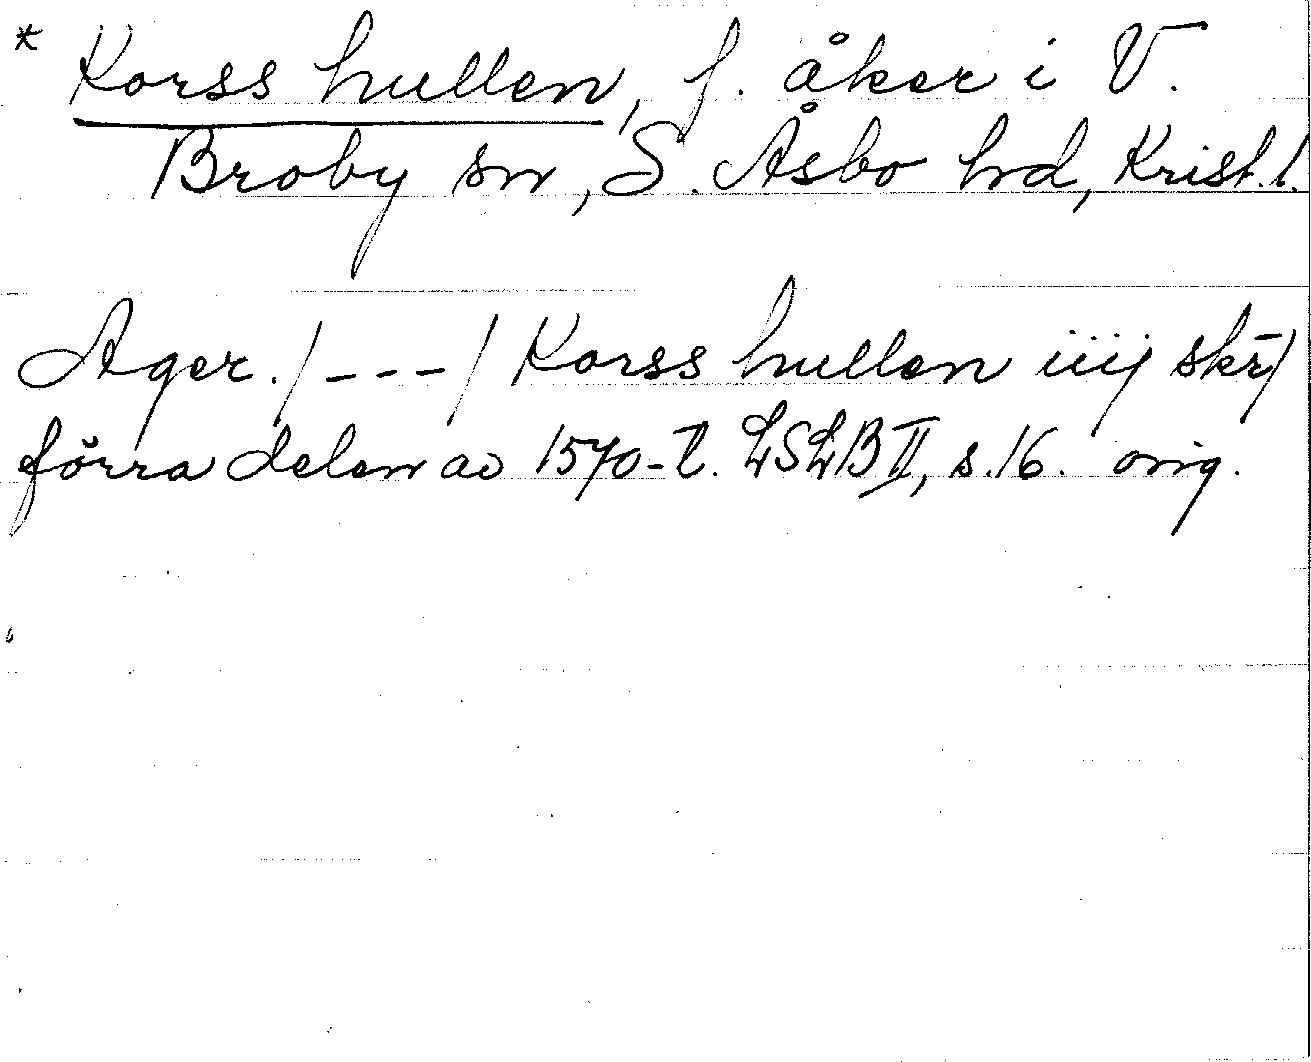 * Korss hullen, f. åker i V.
Broby sn, S. Åsbo hd, Krist. l.
Ager. /---/ Korss hullen iiij skr̄)
förra delen av 1570-t. LSLB II, s. 16. orig.